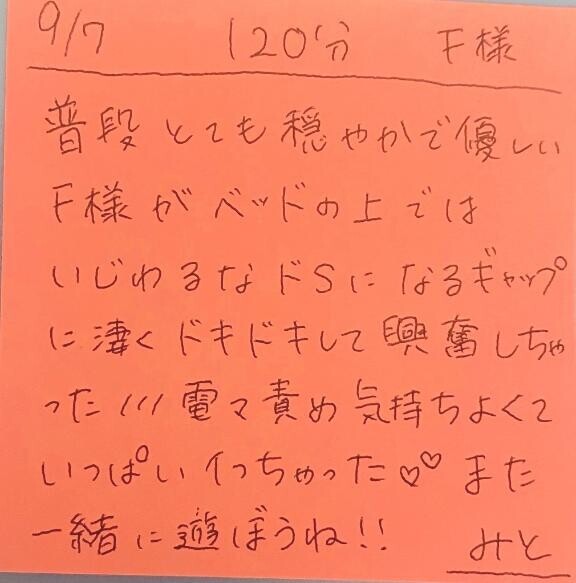 9/7 120分 F様
普段とても穏やかで優しい
F様がベッドの上では
いじわるなドSになるギャップ
に凄くドキドキして興奮しちゃ
った///電マ責め気持ちよくて
いっぱいイっちゃった♡♡また
一緒に遊ぼうね!!
みと